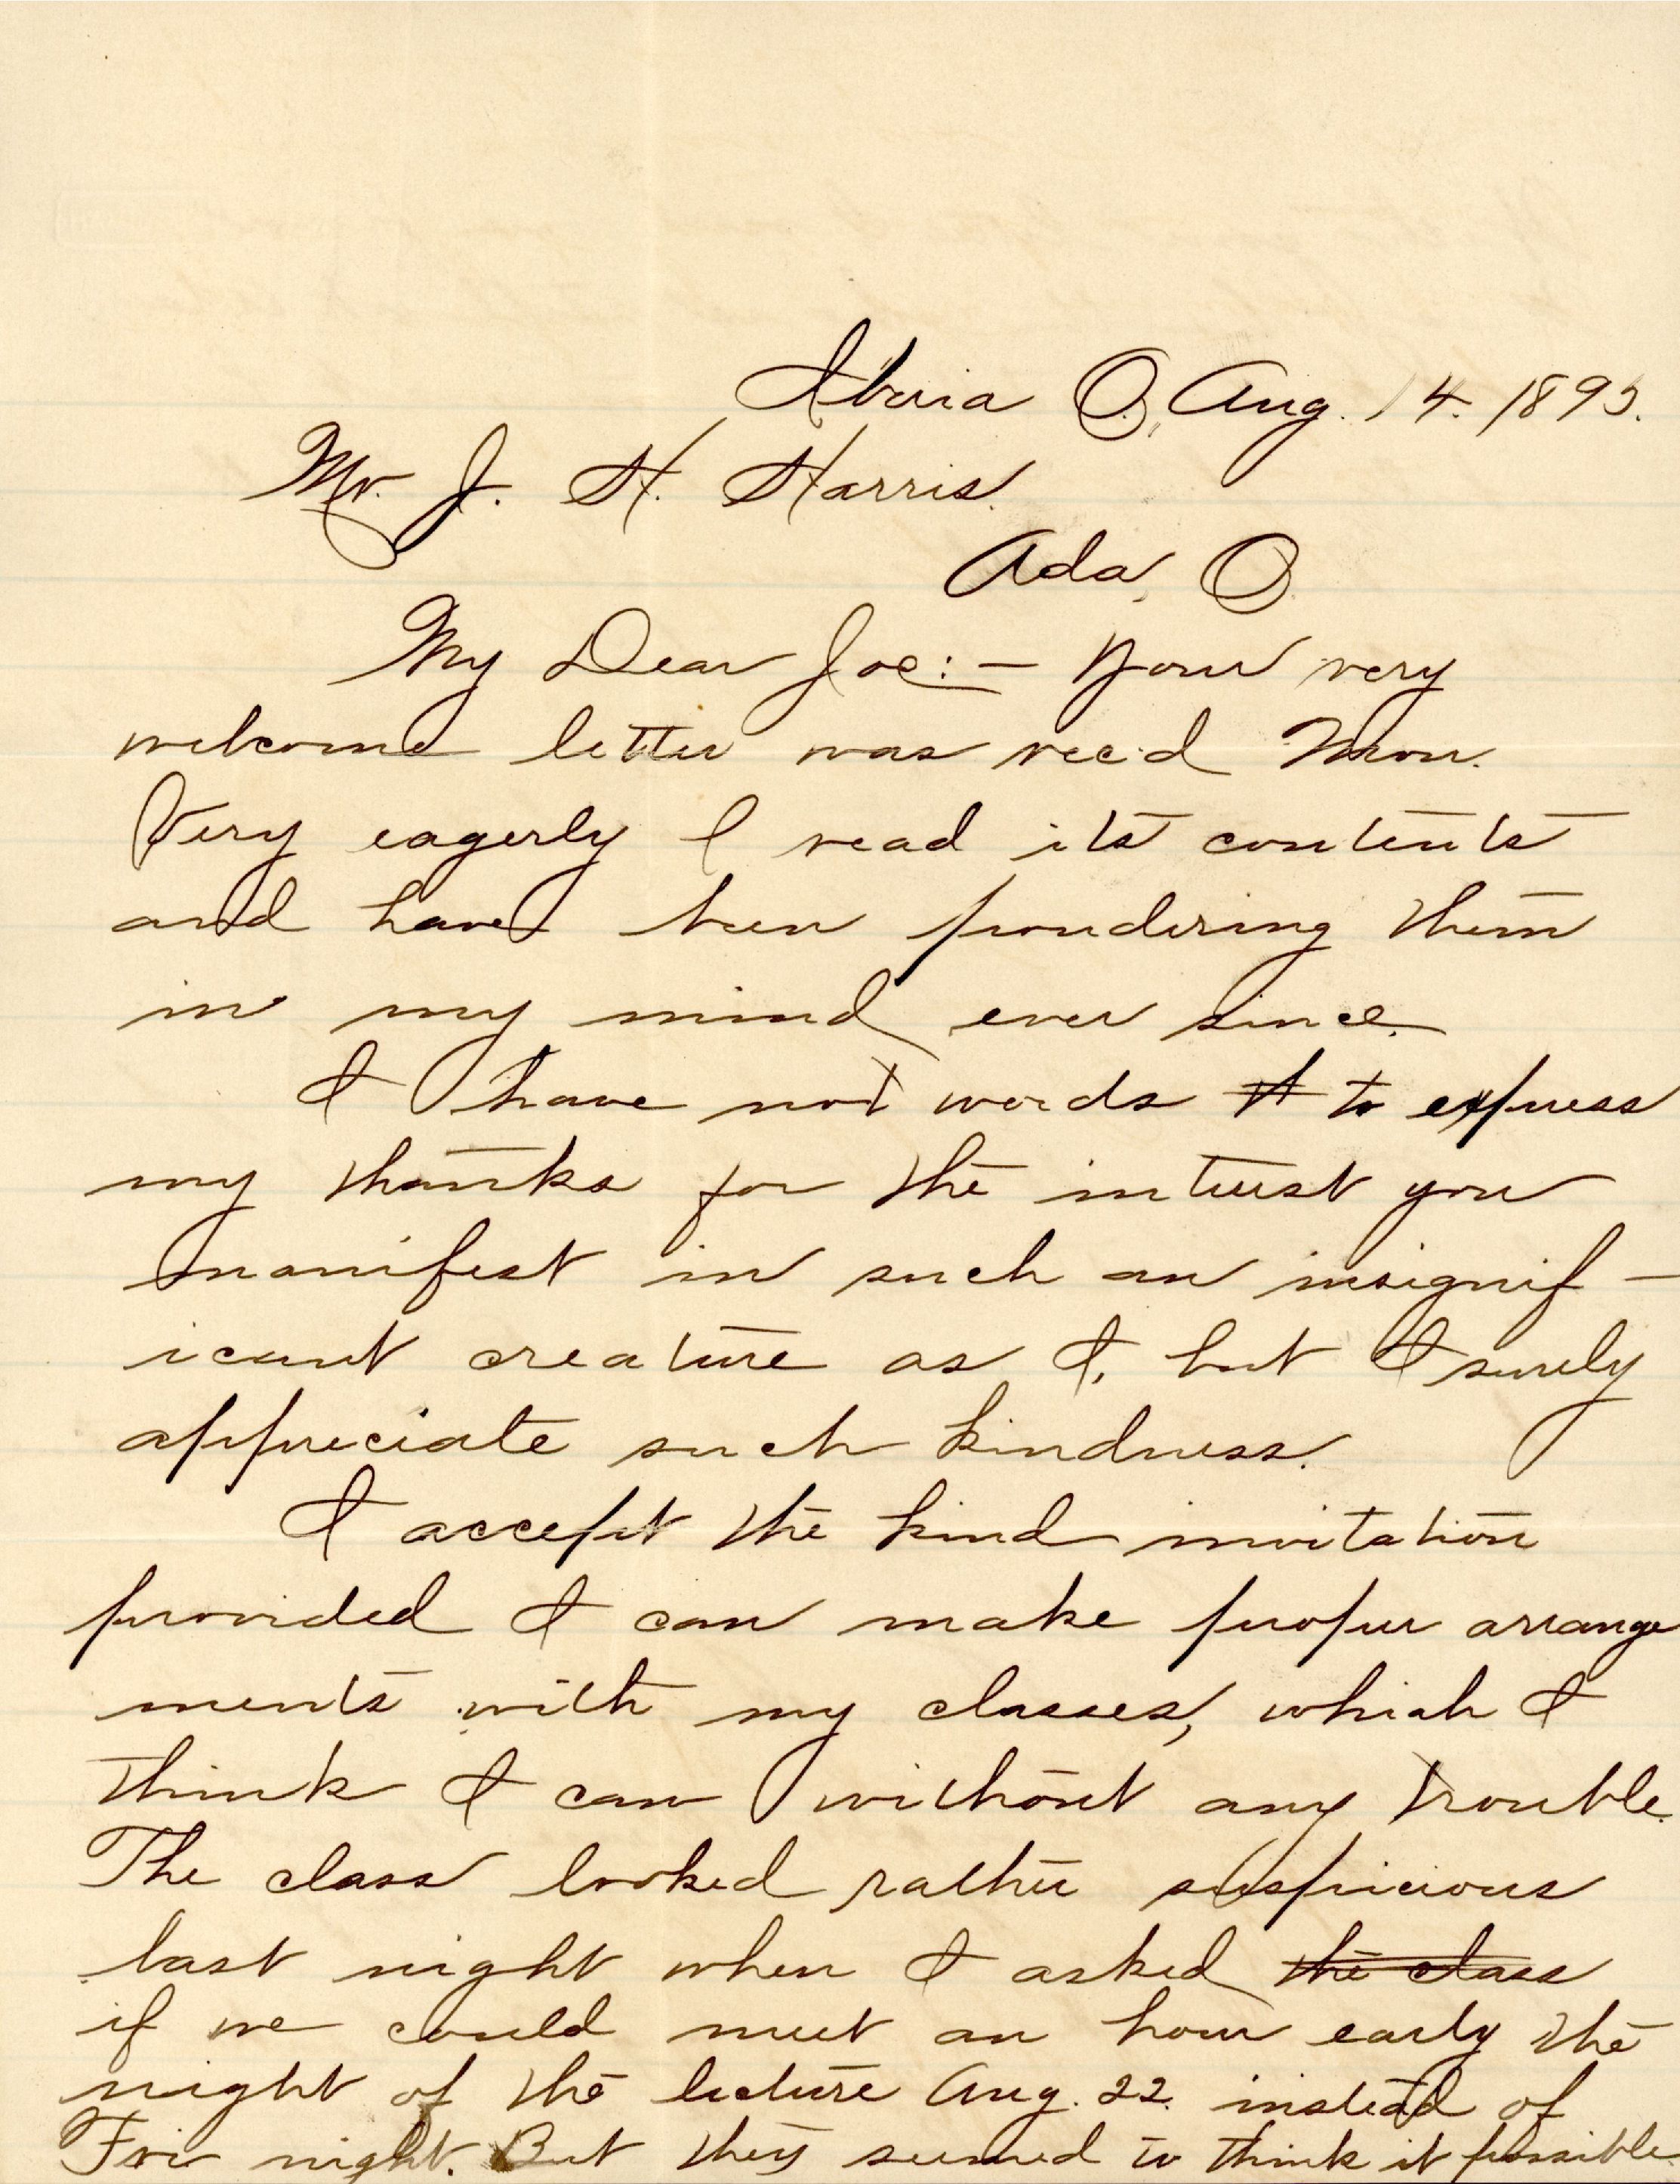 Iberia O., Aug. 14. 1895.
Mr. J. H. Harris.
Ada, O.
My Dear Joe:— Your very
welcome letter was rec'd Mon.
Very eagerly I read its contents
and have been pondering them
in my mind ever since.
I have not words to express
my thanks for the interest you
manifest in such an insignif-
icant creature as I, but I surely
appreciate such kindness.
I accept the kind invitation
provided I can make proper arrange
ments with my classes, which I
think I can without any trouble.
The class looked rather suspicious
last night when I asked the class
if we could meet an hour early the
night of the lecture Aug. 22. instead of
Fri night. But they seemed to think it possible